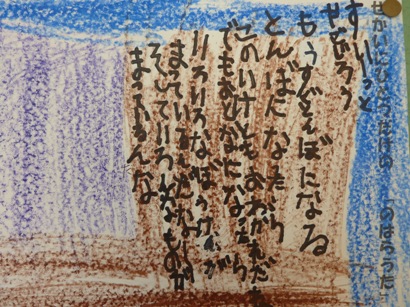 せかいにひとつだけの「のはらうた」
すいすいと
やごろう
もうすぐとんぼになる
とんぼになったら
このいけともおわかれだな
でもおとなになったら
いろいろなぼうけんが
まっているんだな
そしていろんなものが
まっているんだな